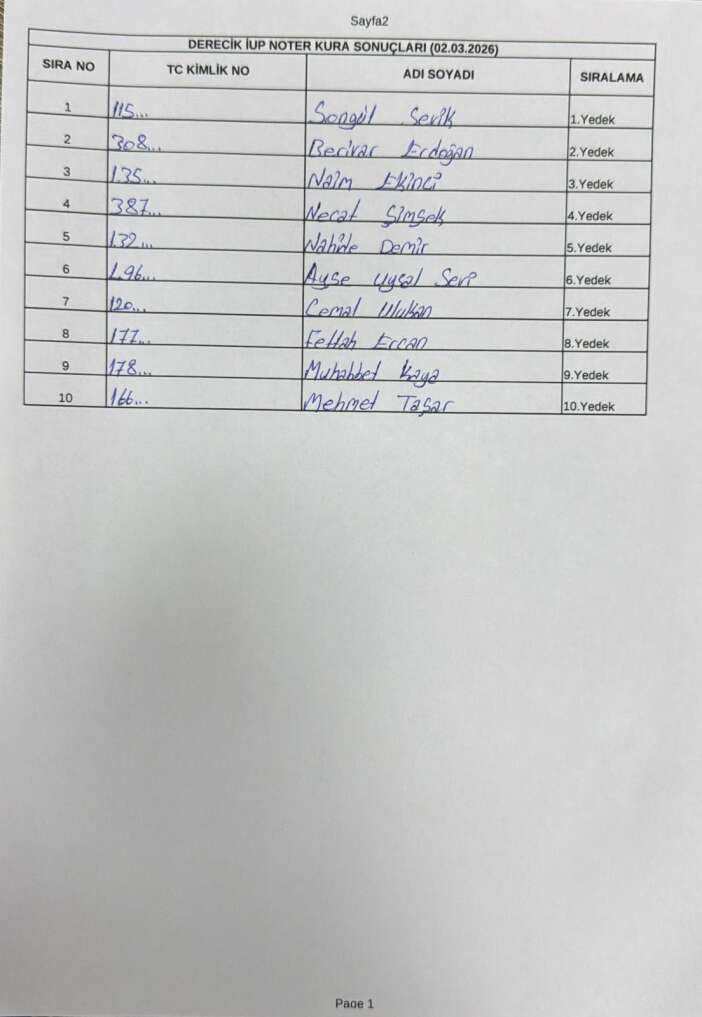 Sayfa2
DERECİK İUP NOTER KURA SONUÇLARI (02.03.2026)
SIRA NO TC KİMLİK NO ADI SOYADI SIRALAMA
1 115... Songül Sevik 1.Yedek
2 308... Berivar Erdoğan 2.Yedek
3 135... Naim Ekinci 3.Yedek
4 387... Necat Şimşek 4.Yedek
5 132... Nahide Demir 5.Yedek
6 196... Ayşe Uysal Seri 6.Yedek
7 120... Cemal 7.Yedek
8 177... Fettah Ercan 8.Yedek
9 178... Muhabbet Kaya 9.Yedek
10 166... Mehmet Taşar 10.Yedek
Page 1